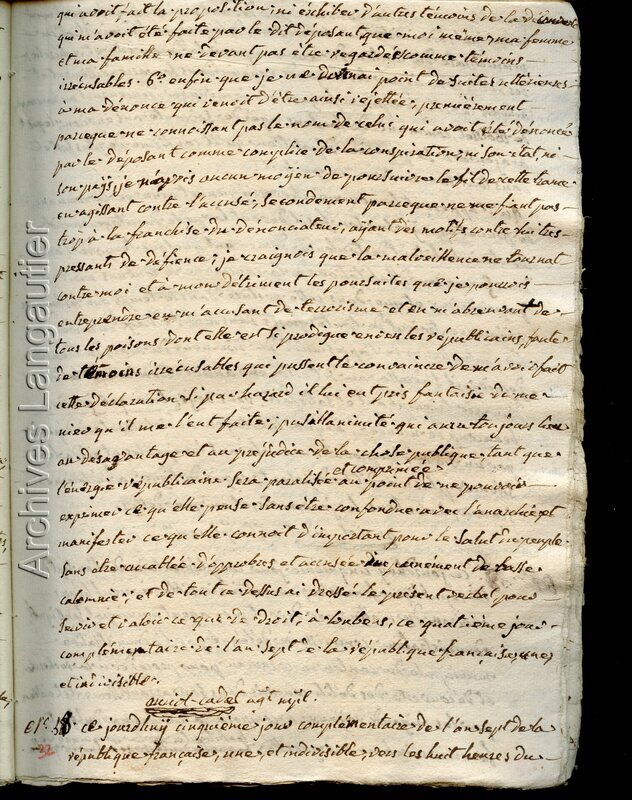 qui avoit fait la proposition, ni exhiber d'autres témoins de la
qui m'avoit été faite par le dit déposant que moi même, ma femme
et ma famille ne devant pas être regardés comme témoins
irrécusables. 6.o enfin que je ne donnai point de suites ultérieures
à ma dénonce qui venoit d'être ainsi rejettée, premièrement
parceque ne connoissant pas le nom de celui qui avoit été dénoncé
par le déposant comme complice de la conspiration, ni son état, ni
son pays, je n'avois aucun moyen de poursuivre le fil de cette trame
en agissant contre l'accusé, secondement parceque ne me fiant pas
trop à la franchise du dénonciateur, ayant des motifs contre lui très
pressants de défience; je craignois que la malveillence ne tournat
contre moi et à mon détriment les poursuites que je pourrois
entreprendre en m'accusant de terrorisme et en m'abreuvant de
tous les poisons dont elle est si prodigue envers les républicains, faute
de témoins irrécusables qui pussent le convaincre de m'avoir fait
cette déclaration si par hazard il lui eut pris fantaisie de me
nier qu'il me l'eut faite; pusillanimité qui aura toujours lieu
au désavantage et au préjudice de la chose publique tant que
l'énergie républicaine sera paralisée et comprimée au point de ne pouvoir
exprimer ce qu'elle pense sans être confondue avec l'anarchie, et
manifester ce qu'elle connoit d'important pour le salut du peuple
sans être accablée d'opprobres et accusée de basse
calomnie; et de tout ce dessus ai dressé le présent verbal pour
servir et valoir ce que de droit, à lombers, ce quatrième jour
complémentaire de l'an sept de la république française, une,
et indivisible.
cadet agt mpl.
ce jourdhuy cinquième jour complémentaire de l'an sept de la
32
république française, une, et indivisible, vers les huit heures du
Archives Langautier